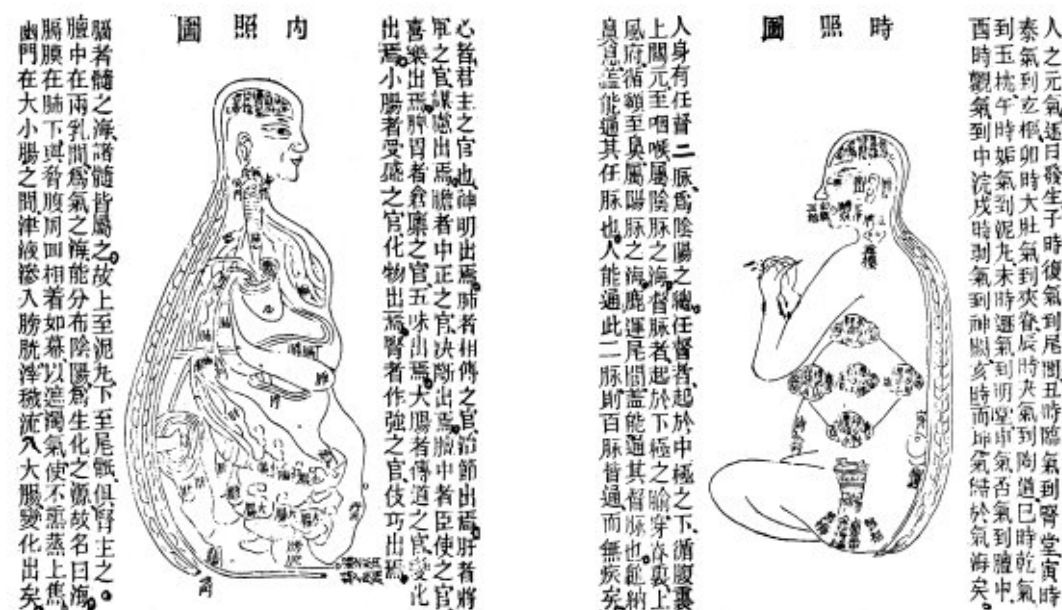 時照圖
人之元氣逐日發生子時復氣到尾閭丑時臨氣到腎堂寅時
泰氣到玄樞卯時大壯氣到夾脊辰時夬氣到陶道巳時乾氣
到玉枕午時姤氣到泥丸未時遯氣到明堂申氣否氣到膻中
酉時觀氣到中浣戌時剝氣到神闕亥時而坤氣歸於氣海矣
人身有任督二脉爲陰陽之總任督者起於中極之下循腹裏
上關元至咽喉屬陰脉之海督脉者起於下極之腧穿脊裏上
風府循額至鼻屬陽脉之海鹿運尾閭蓋能通其督脉也龜納
鼻息蓋能通其任脉也人能通此二脉則百脉皆通而無疾矣
內照圖
心者君主之官也神明出焉肺者相傅之官治節出焉肝者將
軍之官謀慮出焉膽者中正之官决斷出焉膻中者臣使之官
喜樂出焉脾胃者倉廩之官五味出焉大腸者傳道之官變化
出焉小腸者受盛之官化物出焉腎者作強之官伎巧出焉
腦者髓之海諸髓皆屬之故上至泥丸下至尾骶俱腎主之
膻中在兩乳間爲氣之海能分布陰陽爲生化之源故名曰海
膈膜在肺下與脅腹周回相着如幕以遮濁氣使不熏蒸上焦
幽門在大小腸之間津液滲入膀胱滓穢流入大腸變化出矣